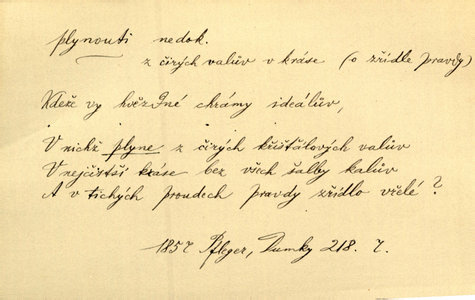 plynouti nedok.
z čirých valův v kráse (o zřídle pravdy)
Kdeže vy hvězdné chrámy ideálův,
V nichž plyne z čirých křišťálových valův
V nejčistší kráse bez všech šalby kalův
A v tichých proudech pravdy zřídlo vřelé?
1857 Pfleger, Dumky 218. 7.